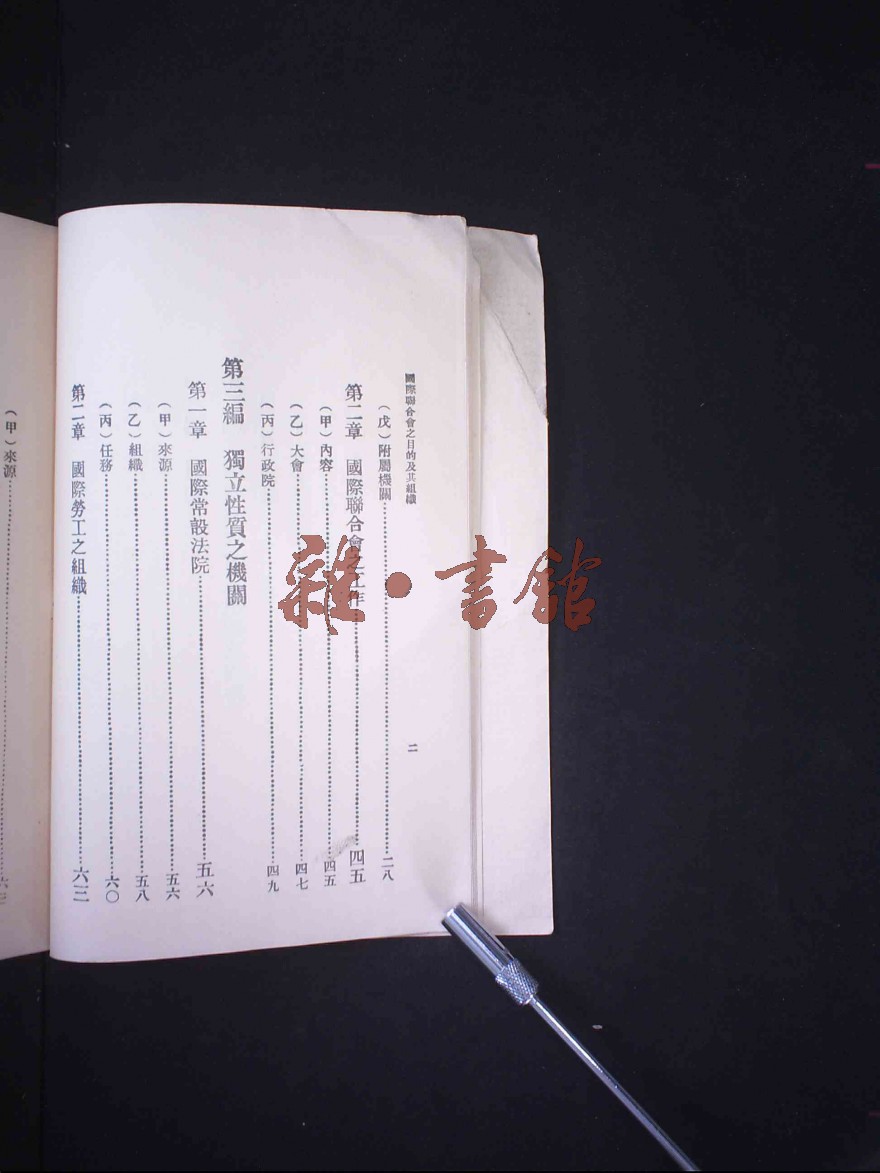 國際聯合會之目的及其組織 二
(戊)附屬機關 二八
第二章 國際聯合會之工作 四五
(甲)內容 四五
(乙)大會 四七
(丙)行政院 四九
第三編 獨立性質之機關
第一章 國際常設法院 五六
(甲)來源 五六
(乙)組織 五八
(丙)任務 六〇
第二章 國際勞工之組織 六三
(甲)來源
雜·書館